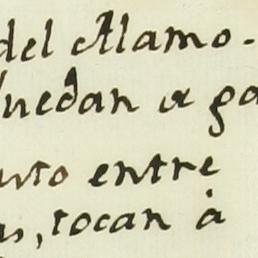 del Alamo.
quedan a ga
usto entre
s, tocan à